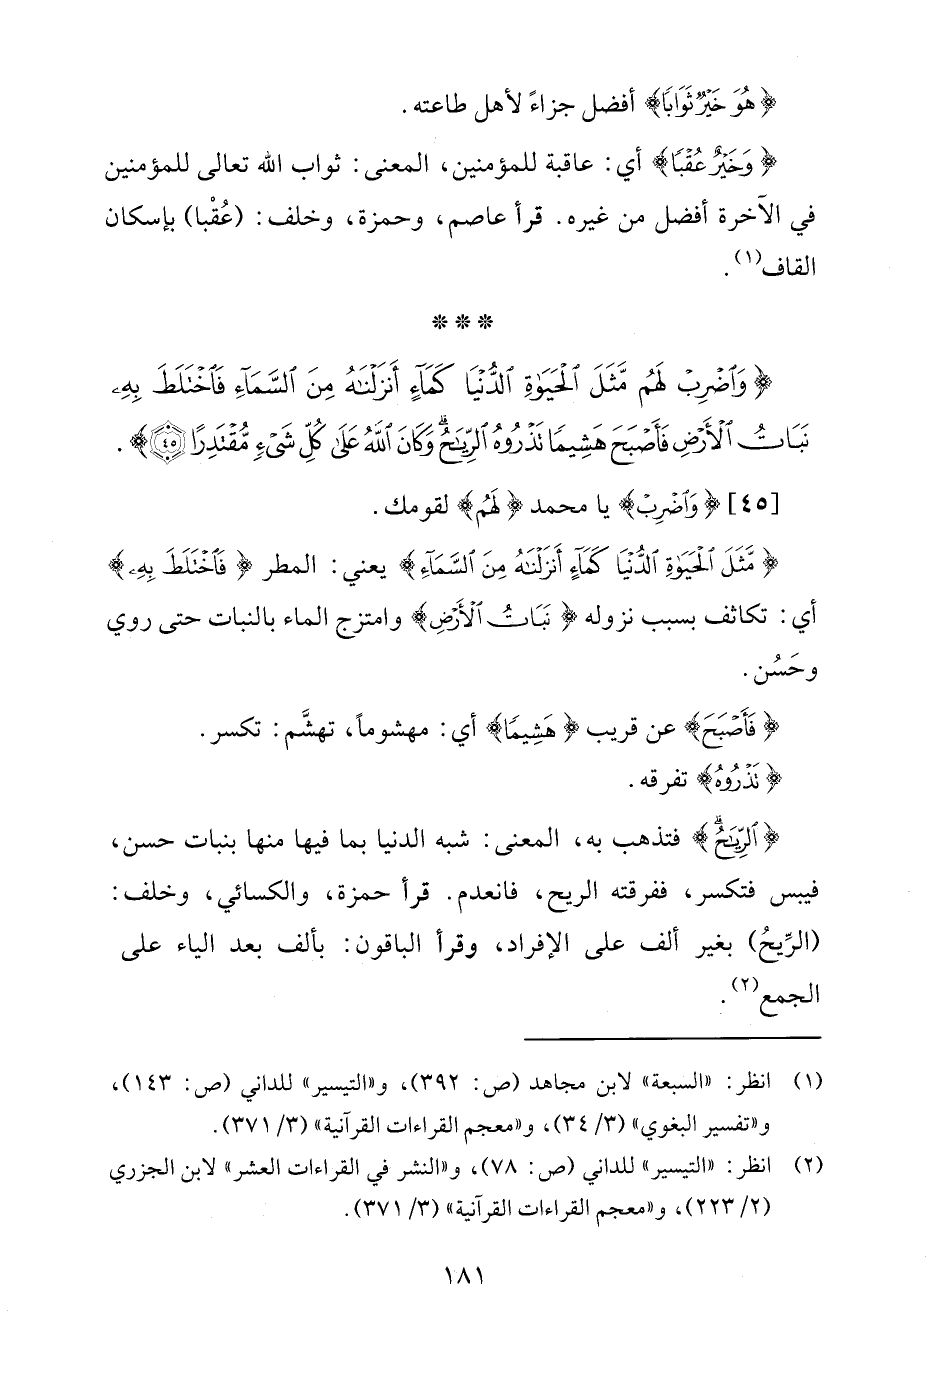 ﴿هُوَ خَيْرٌ ثَوَابًا﴾ أفضل جزاءً لأهل طاعته .
﴿وَخَيْرٌ عُقْبًا﴾ أي: عاقبة للمؤمنين، المعنى: ثواب الله تعالى للمؤمنين
في الآخرة أفضل من غيره. قرأ عاصم، وحمزة، وخلف: (عُقْبا) بإسكان
القاف(١).
***
﴿وَٱضْرِبْ لَهُم مَّثَلَ ٱلْحَيَوٰةِ ٱلدُّنْيَا كَمَآءٍ أَنزَلْنَٰهُ مِنَ ٱلسَّمَآءِ فَٱخْتَلَطَ بِهِۦ
نَبَاتُ ٱلْأَرْضِ فَأَصْبَحَ هَشِيمًا تَذْرُوهُ ٱلرِّيَٰحُ ۗ وَكَانَ ٱللَّهُ عَلَىٰ كُلِّ شَىْءٍ مُّقْتَدِرًا ۝٤٥﴾ .
[٤٥] ﴿وَٱضْرِبْ﴾ يا محمد ﴿لَهُم﴾ لقومك .
﴿مَّثَلَ ٱلْحَيَوٰةِ ٱلدُّنْيَا كَمَآءٍ أَنزَلْنَٰهُ مِنَ ٱلسَّمَآءِ﴾ يعني: المطر ﴿فَٱخْتَلَطَ بِهِۦ﴾
أي: تكاثف بسبب نزوله ﴿نَبَاتُ ٱلْأَرْضِ﴾ وامتزج الماء بالنبات حتى روي
وحَسُن .
﴿فَأَصْبَحَ﴾ عن قريب ﴿هَشِيمًا﴾ أي: مهشوماً، تهشَّم: تكسر .
﴿تَذْرُوهُ﴾ تفرقه .
﴿ٱلرِّيَٰحُ ۗ﴾ فتذهب به، المعنى: شبه الدنيا بما فيها منها بنبات حسن،
فيبس فتكسر، ففرقته الريح، فانعدم. قرأ حمزة، والكسائي، وخلف:
(الرِّيحُ) بغير ألف على الإفراد، وقرأ الباقون: بألف بعد الياء على
الجمع(٢).
(١) انظر: «السبعة» لابن مجاهد (ص: ٣٩٢)، و«التيسير» للداني (ص: ١٤٣)،
و«تفسير البغوي» (٣/ ٣٤)، و«معجم القراءات القرآنية» (٣/ ٣٧١).
(٢) انظر: «التيسير» للداني (ص: ٧٨)، و«النشر في القراءات العشر» لابن الجزري
(٢/ ٢٢٣)، و«معجم القراءات القرآنية» (٣/ ٣٧١).
١٨١